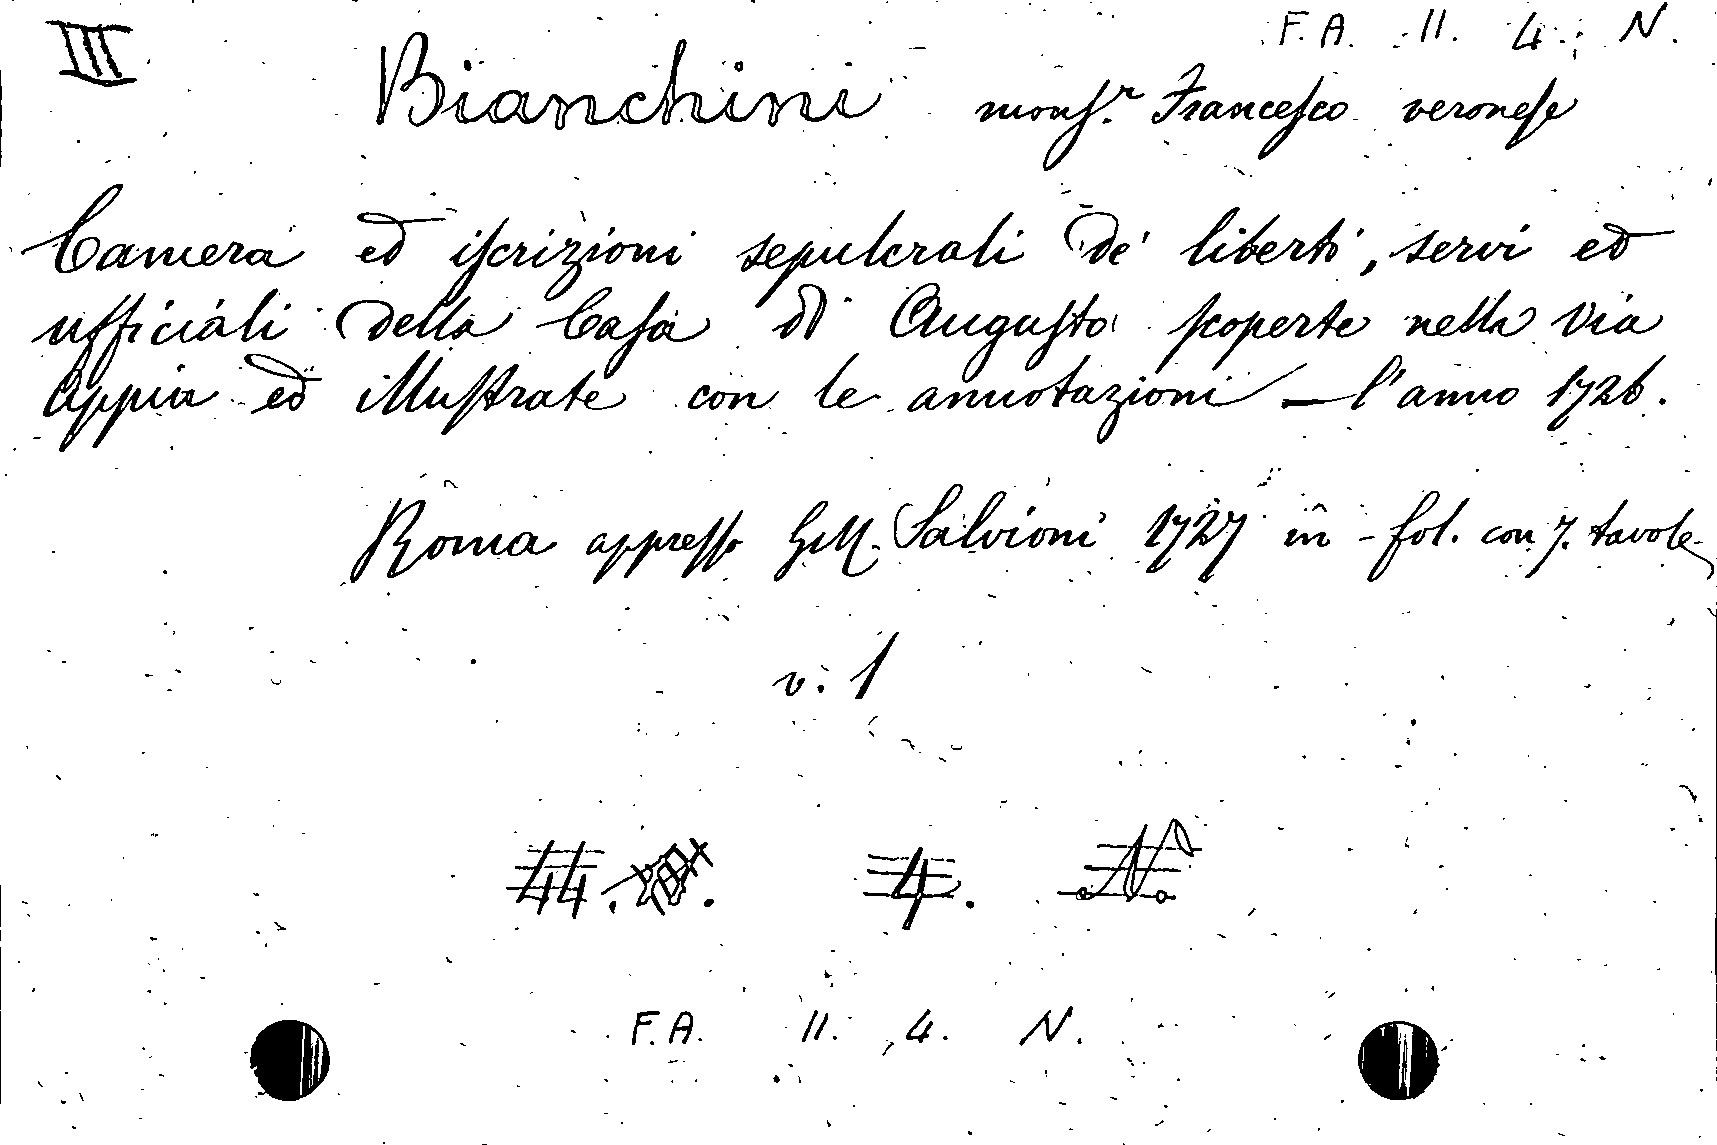 III
F. A. II. 4. N.
Bianchini monsr. Francesco veronese
Camera ed iscrizioni sepulcrali de' liberti, servi ed
ufficiali della Casa di Augusto scoperte nella Via
Appia ed illustrate con le annotazioni — l'anno 1726.
Roma appresso G.M. Salvioni 1727 in - fol. con 7. tavole
v. 1
44. 4. N
F. A. II. 4. N.